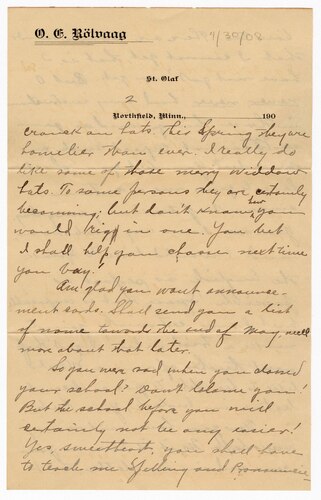 O. E. Rölvaag
4/30/08
St. Olaf
2
Northfield, Minn., 190
crank on hats. This Spring they are
homelier than ever. I really do
like some of those merry widdow
hats. To some persons they are certainly
becoming; but don't know how you
would in one. You bet
I shall help you choose next time
you buy!
Am glad you want announce-
ment cards. Shall send you a list
of name towards the end of May, well
more about that later.
So you were sad when you closed
your school? Don't blame you!
But the school before you will
certainly not be any easier!
Yes, sweetheart, you shall have
to teach me Spelling and Pronuncia-